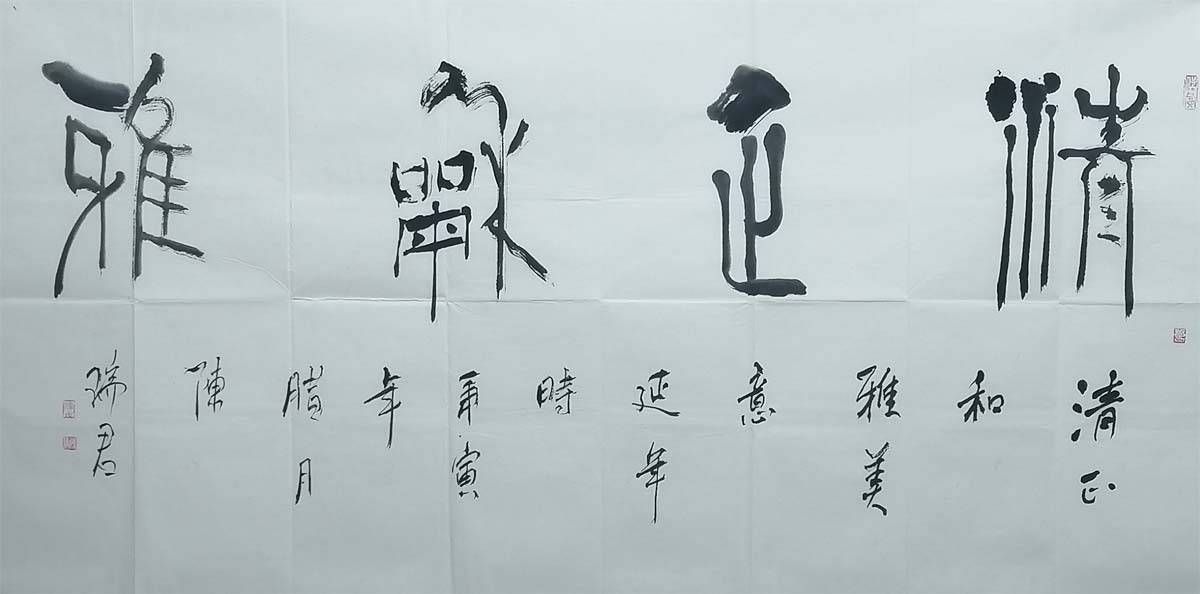 清正龢雅
清正
和
雅美
意
延年
時
庚寅
年
臘月
陳
瑞君